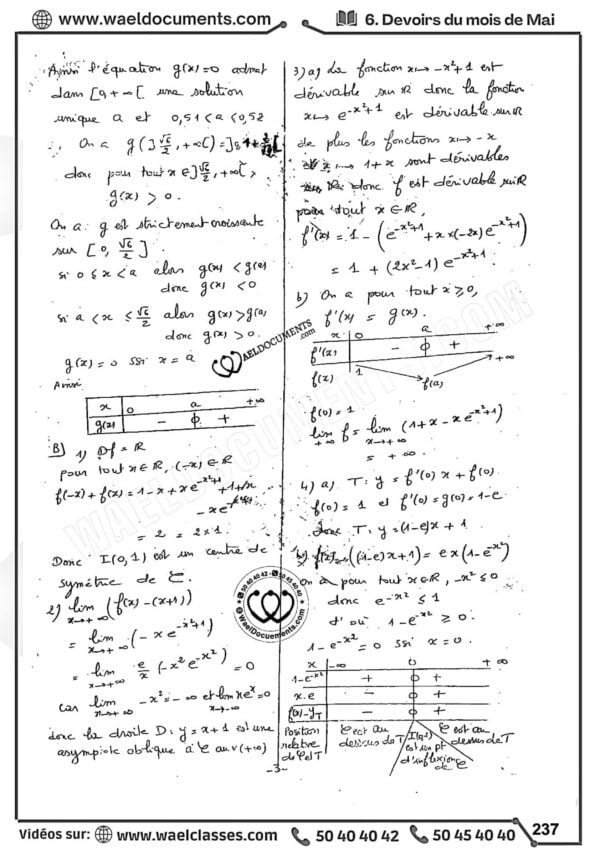 www.waeldocuments.com
6. Devoirs du mois de Mai
Ainsi l'équation g(x)=0 admet
dans [0,+∞[ une solution
unique a et 0,51<a<0,52
On a g(]√6/2,+∞[)=]
donc pour tout x∈]√6/2,+∞[,
g(x) > 0.
On a: g est strictement croissante
sur [0, √6/2].
si 0≤x<a alors g(x)<g(a)
donc g(x) < 0
si a<x≤√6/2 alors g(x)>g(a)
donc g(x)>0.
g(x)=0 ssi x=a
Ainsi
x 0 a +∞
g(x) − 0 +
B) 1) Df=ℝ
pour tout x∈ℝ, (-x)∈ℝ
f(-x)+f(x)=1-x+xe^{-x²+1}+1+x
-xe^{-x²+1}
= 2 = 2×1.
Donc I(0,1) est un centre de
symétrie de C.
2) lim x→+∞ (f(x)-(x+1))
= lim x→+∞ (-xe^{-x²+1})
= lim x→+∞ e/x (-x²e^{-x²}) = 0
car lim x→+∞ -x²=-∞ et lim x→-∞ xe^x=0
donc la droite D: y=x+1 est une
asymptote oblique à C au v(+∞)
3) a) La fonction x↦-x²+1 est
dérivable sur ℝ donc la fonction
x↦e^{-x²+1} est dérivable sur ℝ
de plus les fonctions x↦-x
et x↦1+x sont dérivables
sur ℝ donc f est dérivable sur ℝ
pour tout x∈ℝ,
f'(x)=1-(e^{-x²+1}+x×(-2x)e^{-x²+1})
= 1+(2x²-1)e^{-x²+1}
b) On a pour tout x≥0,
f'(x) = g(x).
x 0 a +∞
f'(x) − 0 +
f(x) 1 f(a) +∞
f(0)=1
lim x→+∞ f = lim x→+∞ (1+x-xe^{-x²+1})
= +∞.
4) a) T: y=f'(0)x+f(0)
f(0)=1 et f'(0)=g(0)=1-e
donc T: y=(1-e)x+1
b) f(x)-((1-e)x+1)=ex(1-e^{-x²})
On a pour tout x∈ℝ, -x²≤0
donc e^{-x²}≤1
d'où 1-e^{-x²}≥0.
1-e^{-x²}=0 ssi x=0.
x -∞ 0 +∞
1-e^{-x²} + 0 +
x.e − 0 +
f(x)-y_T − 0 +
Position relative de C et T
C est au dessous de T
I(0,1) est un pt d'inflexion de C
C est au dessus de T
-3-
WAELDOCUMENTS.COM
50 40 40 42
50 45 40 40
WaelDocuements.com
Vidéos sur:
www.waelclasses.com
50 40 40 42
50 45 40 40
237